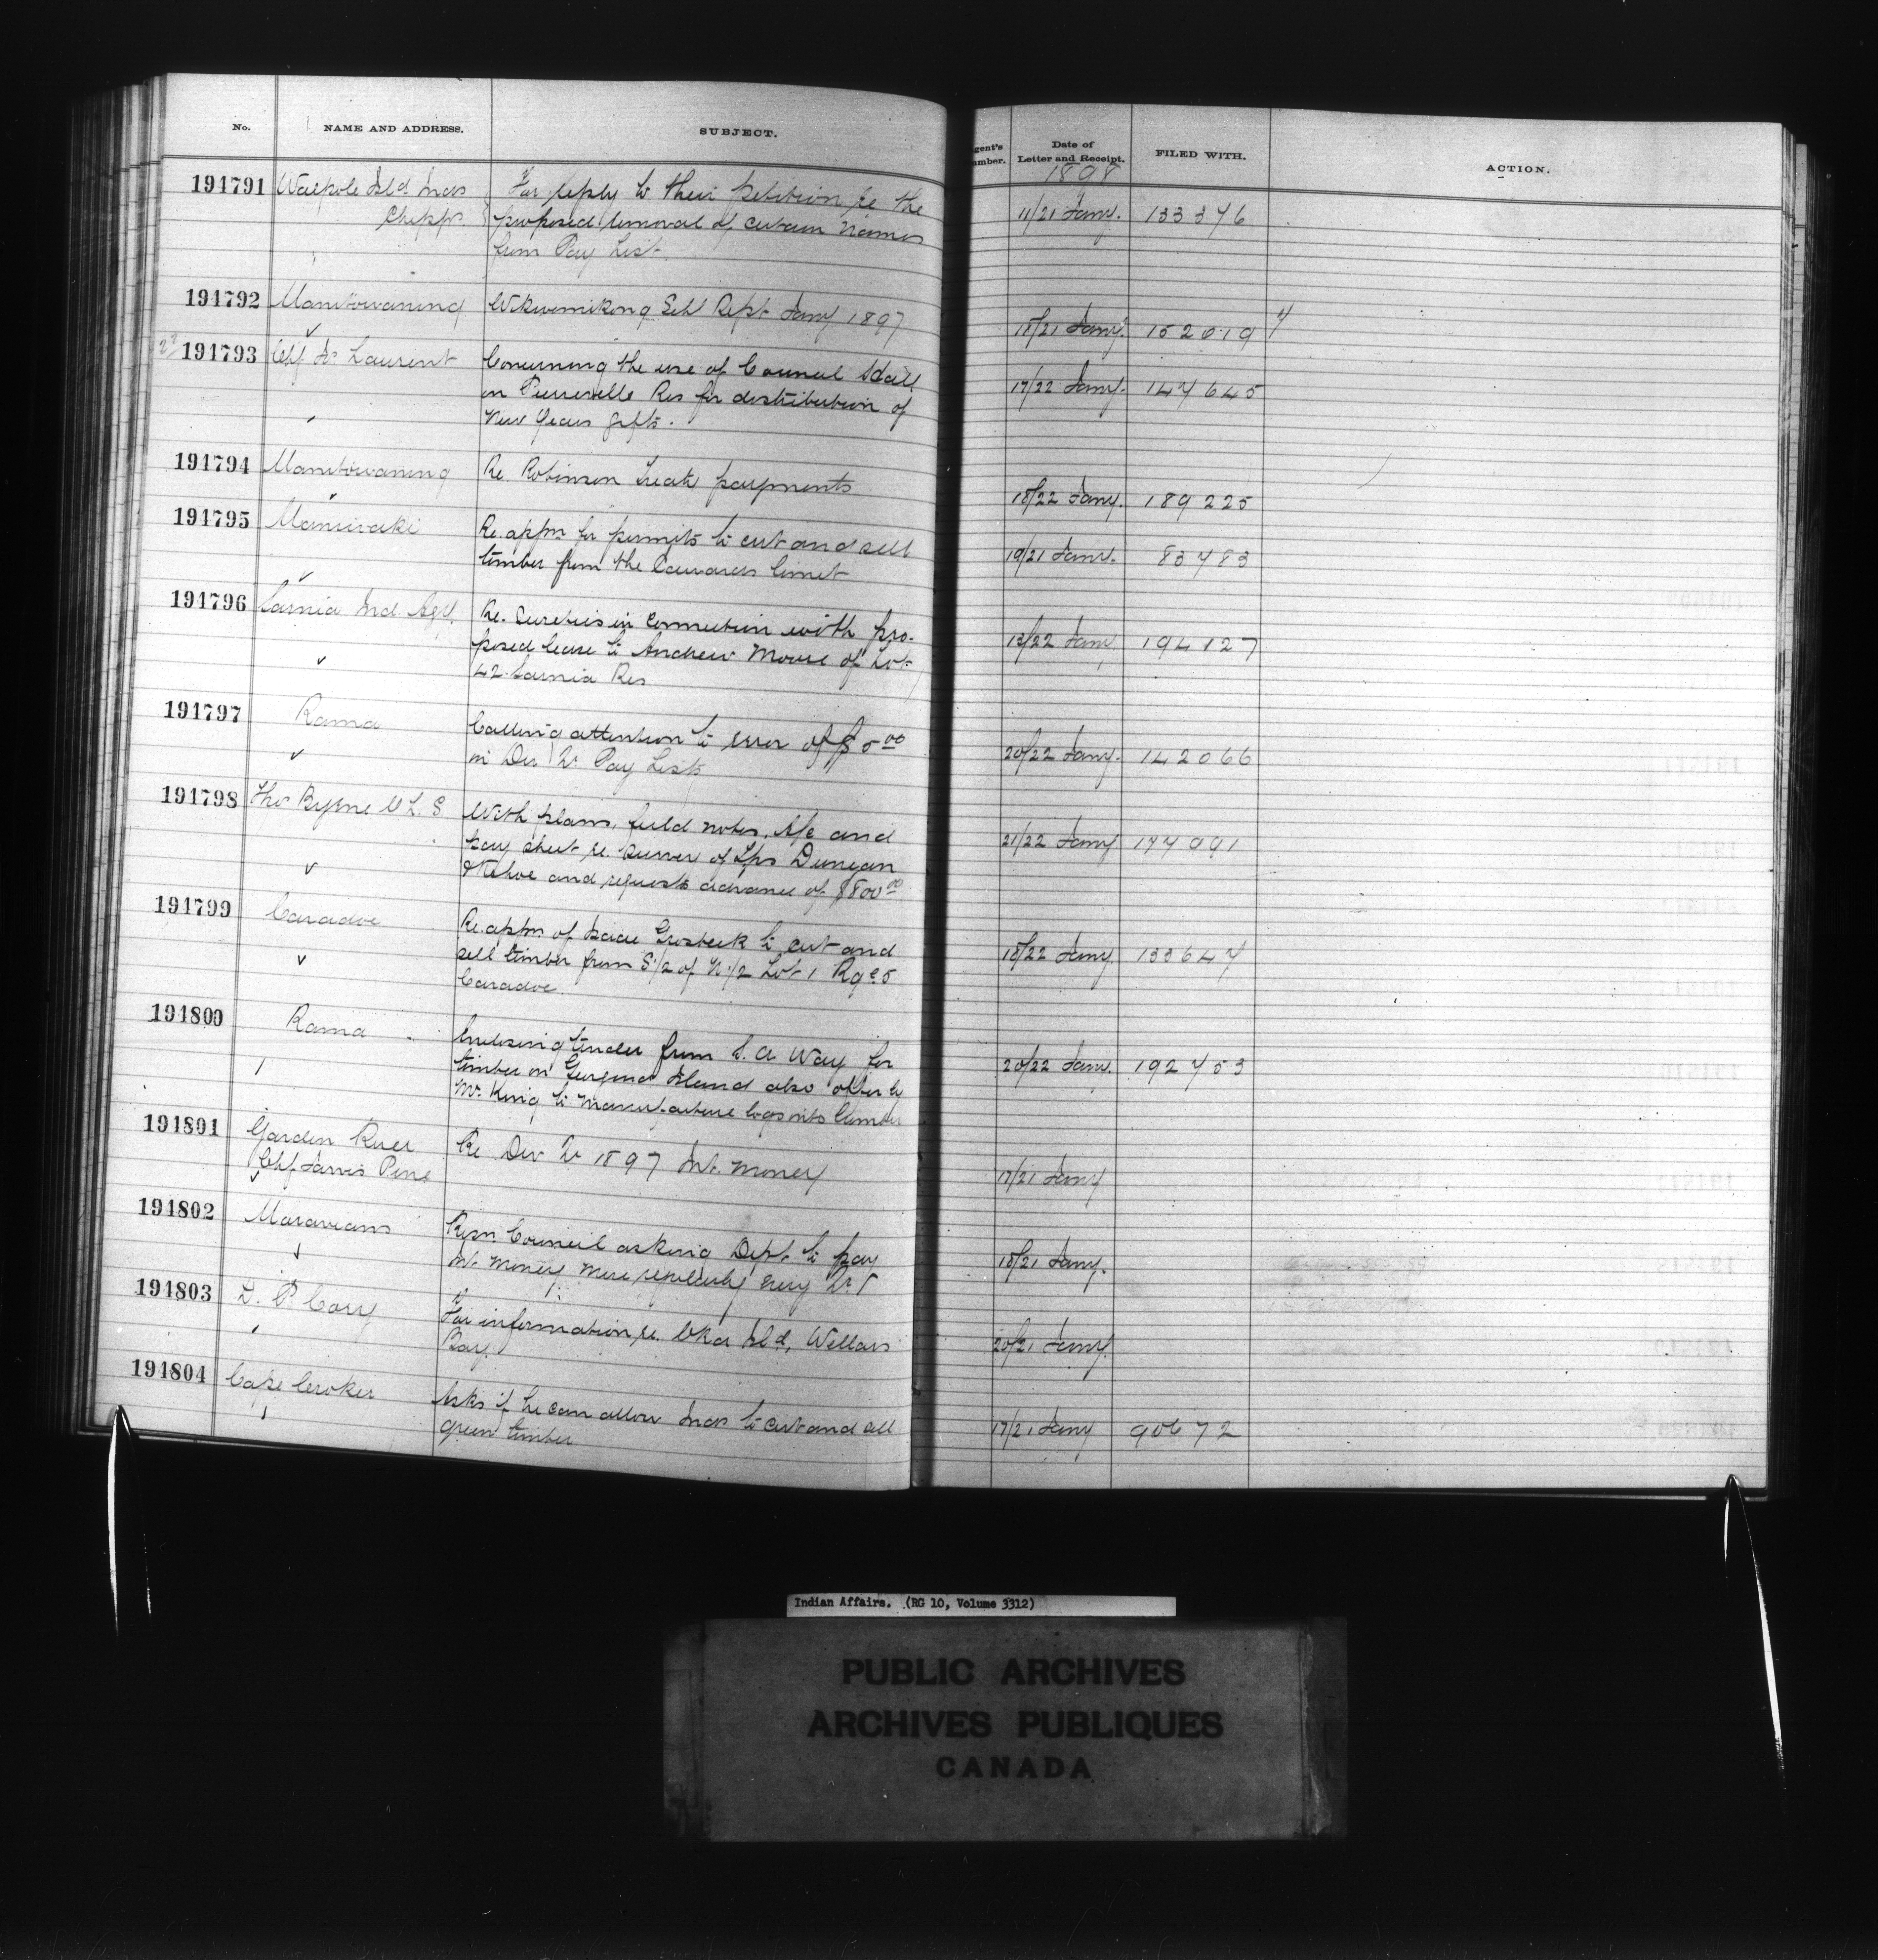 No. NAME AND ADDRESS. SUBJECT.
gent's umber. Date of Letter and Receipt. FILED WITH. ACTION.
1898
191791 Walpole Isld Inds For reply to their petition re the 11/21 Jany. 133376
Chipps. proposed removal of certain names
from Pay List.
191792 Manitowaning Wikwemikong Schl Rept Jany 1897 18/21 Jany. 152619
191793 Chf Laurent Concerning the use of Council Hall 17/22 Jany. 147645
on Pierreville Res for distribution of
New Years gifts.
191794 Manitowaning Re. Robinson Treaty payments 18/22 Jany. 189225
191795 Maniwaki Re. appn for permits to cut and sell 19/21 Jany. 83783
timber from the limit
191796 Sarnia Ind. Agt. Re. Sureties in connection with pro- 13/22 Jany 194127
posed lease to Andrew Moore of Lot
42 Sarnia Res
191797 Rama Calling attention to error of $5.00 20/22 Jany. 142066
in Dec Qr Pay Lists
191798 Thos Byrne P. L. S With plans, field notes, A/c and 21/22 Jany 177991
pay sheet re. survey of Tps Dungan
& Kehoe and requests advance of $800.00
191799 Caradoc Re. appn. of Isaac Grosbeck to cut and 18/22 Jany. 133647
sell timber from S 1/2 of N. 1/2 Lot 1 Rge 5
Caradoc.
191800 Rama Enclosing tender from S. A Way for 20/22 Jany. 192753
timber on Georgina Island also offer by
Mr King to manufacture logs into lumber
191801 Garden River Re Dec Qr 1897 Int. money 17/21 Jany
Chf Jarvis Pine
191802 Moravians Resn. Council asking Dept. to pay 18/21 Jany.
Int. money more regularly every Qr.
191803 D. P. Cory For information re. Isld, Wellars 20/21 Jany.
Bay.
191804 Cape Croker Asks if he can allow Inds to cut and sell 17/21 Jany 90672
green timber
Indian Affairs. (RG 10, Volume 3312)
PUBLIC ARCHIVES
ARCHIVES PUBLIQUES
CANADA